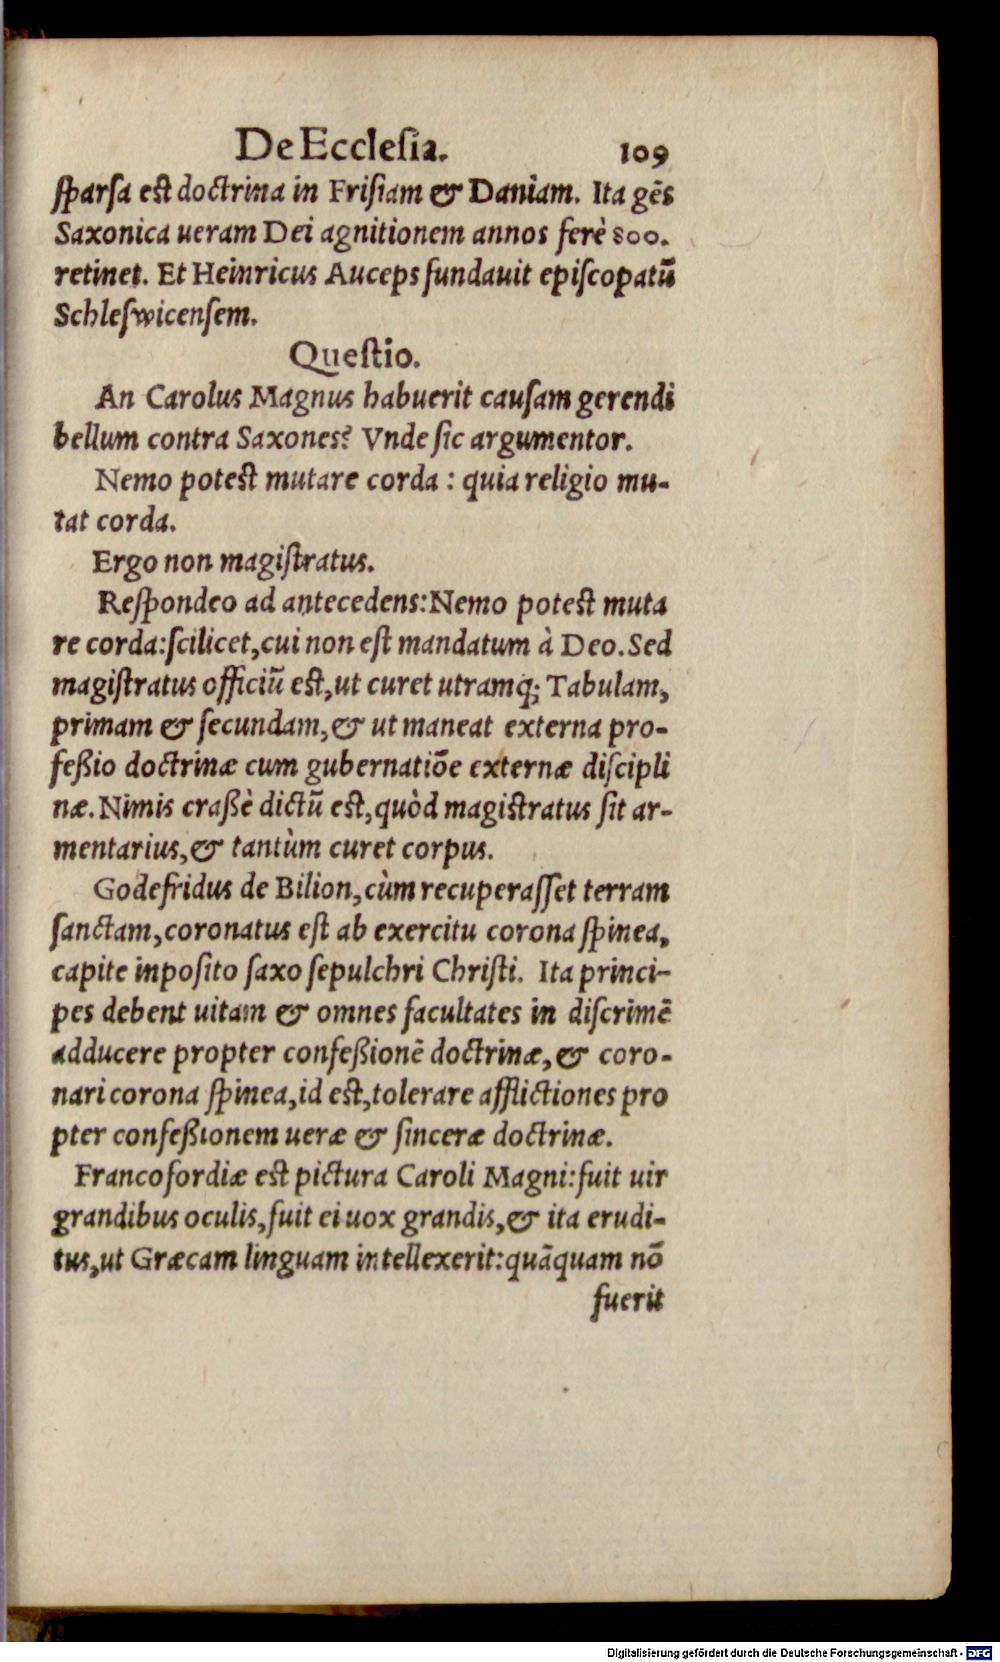 De Ecclesia. 109
sparsa est doctrina in Frisiam & Daniam. Ita gēs
Saxonica ueram Dei agnitionem annos ferè 800.
retinet. Et Heinricus Auceps fundauit episcopatū
Schleswicensem.
Questio.
An Carolus Magnus habuerit causam gerendi
bellum contra Saxones? Vnde sic argumentor.
Nemo potest mutare corda : quia religio mu-
tat corda.
Ergo non magistratus.
Respondeo ad antecedens: Nemo potest muta
re corda: scilicet, cui non est mandatum à Deo. Sed
magistratus officiū est, ut curet utramq; Tabulam,
primam & secundam, & ut maneat externa pro-
feßio doctrinæ cum gubernatiōe externæ discipli
næ. Nimis craßè dictū est, quòd magistratus sit ar-
mentarius, & tantùm curet corpus.
Godefridus de Bilion, cùm recuperasset terram
sanctam, coronatus est ab exercitu corona spinea,
capite inposito saxo sepulchri Christi. Ita princi-
pes debent uitam & omnes facultates in discrimē
adducere propter confeßionē doctrinæ, & coro-
nari corona spinea, id est, tolerare afflictiones pro
pter confeßionem ueræ & sinceræ doctrinæ.
Francofordiæ est pictura Caroli Magni: fuit uir
grandibus oculis, fuit ei uox grandis, & ita erudi-
tus, ut Græcam linguam intellexerit: quāquam nō
fuerit
Digitalisierung gefördert durch die Deutsche Forschungsgemeinschaft - DFG